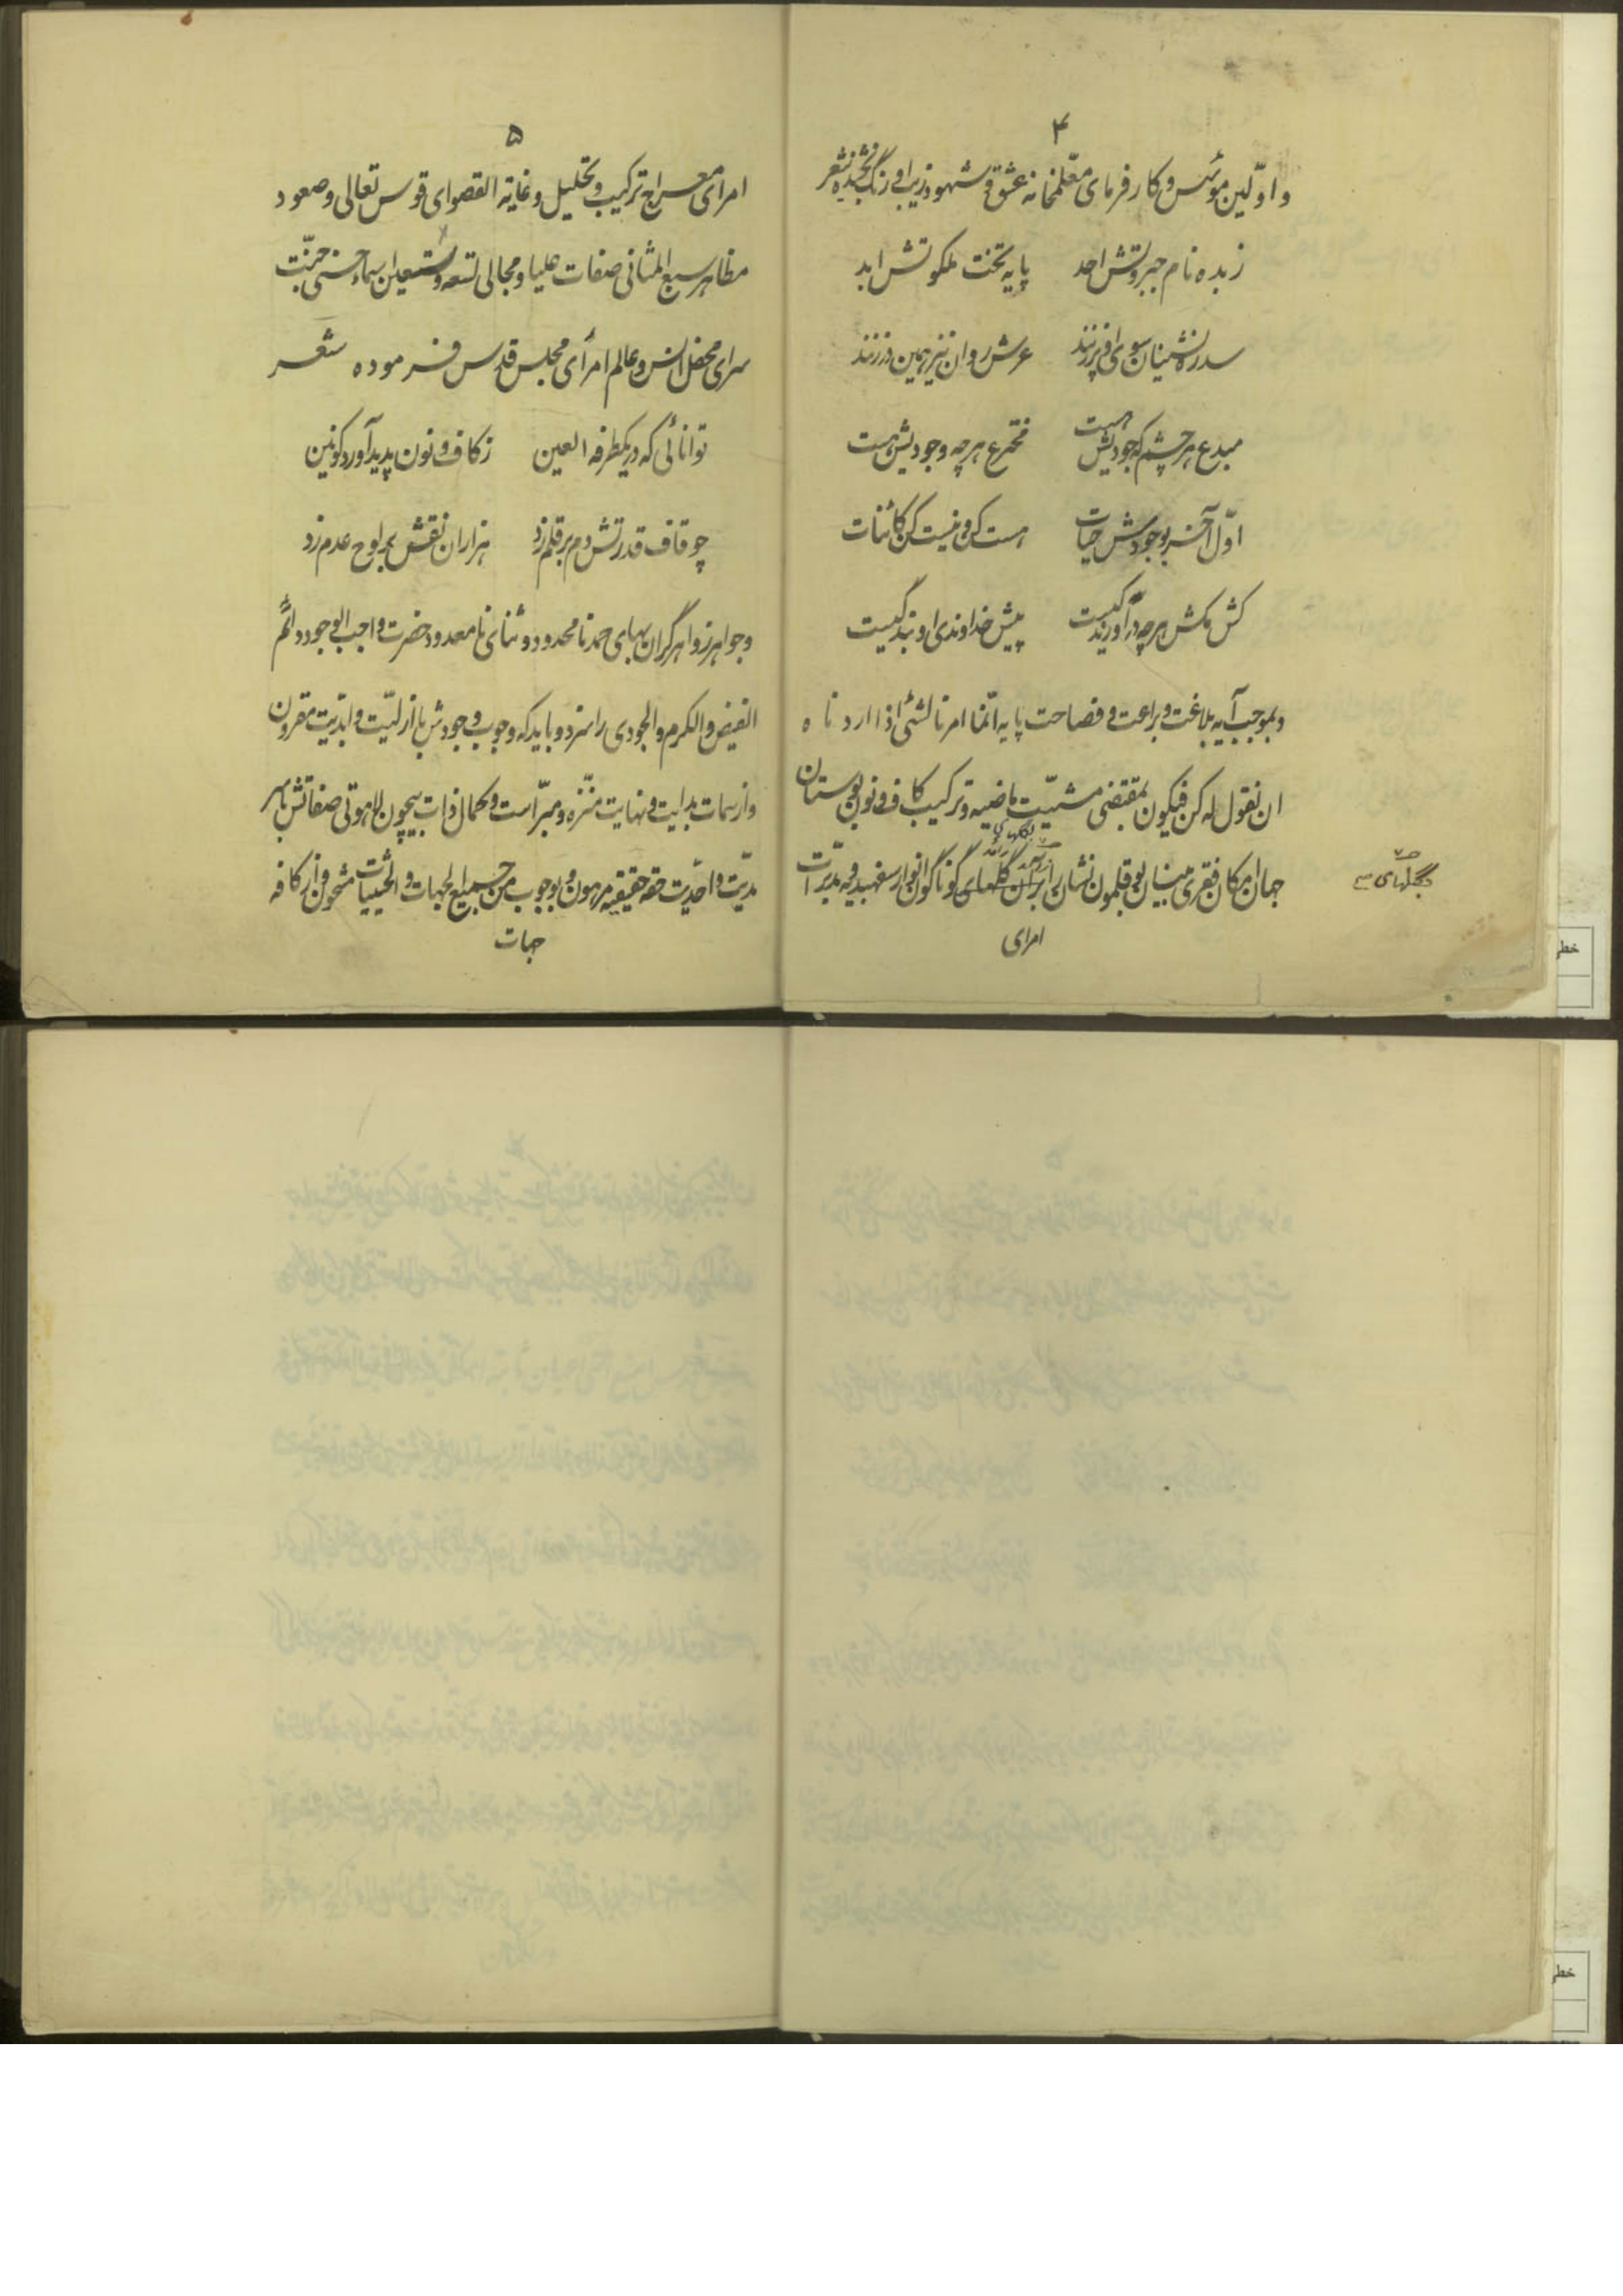 ۴
و اوّلین مؤسس و کارفرمای معلمخانه عشق و شهود زیب و رنگ بخشیده شعر
زبده نام جبروتش احد پایه تخت ملکوتش ابد
سدره نشینان سوی او پر زدند عرش روان نیز همین در زدند
مبدع هر چشمه که جودیش هست مخترع هر چه وجودیش هست
اوّل و آخر بوجودش حیات هست کن و نیست کن کائنات
کش مکش هر چه در او زندگیست پیش خداوندی او بندگیست
و بموجب آیه بلاغت و براعت و فصاحت پایه انّما امرنا لشئی اذا اردناه
ان نقول له کن فیکون بمقتضی مشیّت ماضیه و ترکیب کاف و نون بوستان
جهان امکان گلهای گوناگون انوار سفهبدیه و مدبّرات
بگلهای
امرای
۵
امرای معراج ترکیب و تحلیل و غایة القصوای قوس تعالی و صعود
مظاهر سبع المثانی صفات علیا و مجالی تسعه و تسعین اسماء حسنی جنّت
سرای محفل انس و عالم امرآی مجلس قدس فرموده شعر
توانائی که در یکطرفه العین ز کاف و نون پدید آورد کونین
چو قاف قدرتش دم بر قلم زد هزاران نقش بر لوح عدم زد
و جواهر زواهر گران بهای حمد نامحدود و ثنای نامعدود حضرت واجب الوجود دائم
الفیض و الکرم و الجودی را سزد و باید که وجوب وجودش با ازلیّت و ابدّیت مقرون
و از سمات بدایت و نهایت منزّه و مبرّاست و کمال ذات بیچون لاهوتی صفاتش باسر
مدّیت و احدّیت حقه حقیقیه مرهون و بوجوب من جمیع الجهات و الحیثیات مشحون و از کافه
جهات
خطی
خطی